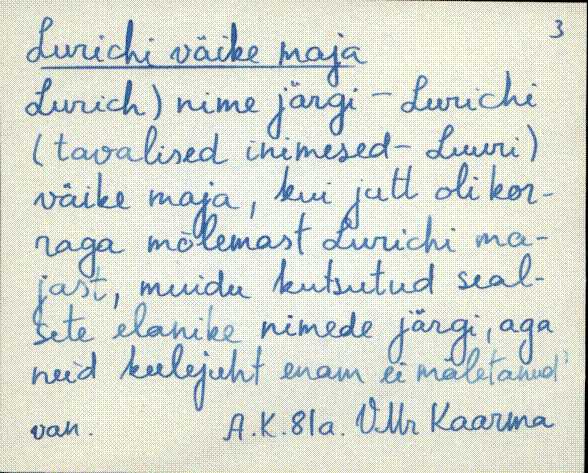 3
Lurichi väike maja
Lurich) nime järgi – Lurichi
(tavalised inimesed – Luuri)
väike maja, kui jutt oli kor-
raga mõlemast Lurichi ma-
jast, muidu kutsutud seal-
sete elanike nimede järgi, aga
neid keelejuht enam ei mäletanud
van. A.K. 81a. VMr Kaarma